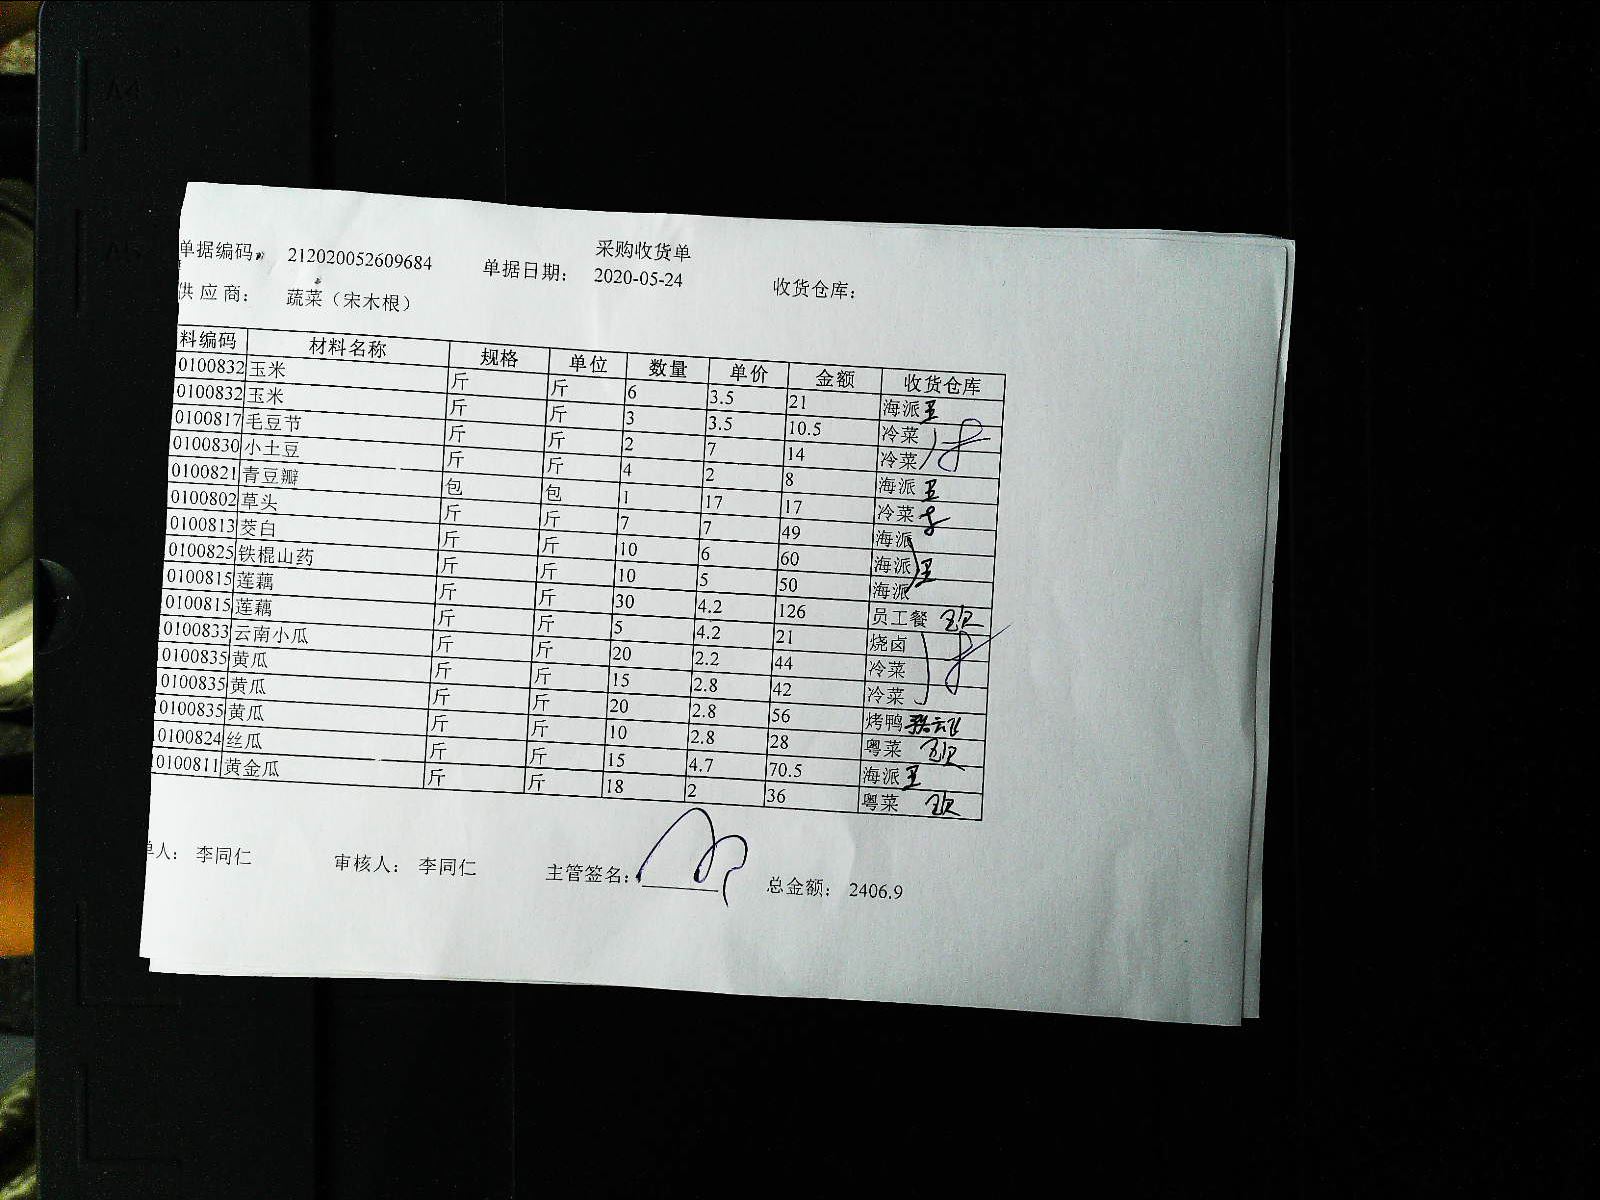 采购收货单
单据编码: 212020052609684 单据日期: 2020-05-24 收货仓库:
供应商: 蔬菜（宋木根）
料编码 材料名称 规格 单位 数量 单价 金额 收货仓库
0100832 玉米 斤 斤 6 3.5 21 海派 王
0100832 玉米 斤 斤 3 3.5 10.5 冷菜
0100817 毛豆节 斤 斤 2 7 14 冷菜
0100830 小土豆 斤 斤 4 2 8 海派 王
0100821 青豆瓣 包 包 1 17 17 冷菜
0100802 草头 斤 斤 7 7 49 海派
0100813 茭白 斤 斤 10 6 60 海派 王
0100825 铁棍山药 斤 斤 10 5 50 海派
0100815 莲藕 斤 斤 30 4.2 126 员工餐
0100815 莲藕 斤 斤 5 4.2 21 烧卤
0100833 云南小瓜 斤 斤 20 2.2 44 冷菜
0100835 黄瓜 斤 斤 15 2.8 42 冷菜
0100835 黄瓜 斤 斤 20 2.8 56 烤鸭
0100835 黄瓜 斤 斤 10 2.8 28 粤菜
0100824 丝瓜 斤 斤 15 4.7 70.5 海派 王
0100811 黄金瓜 斤 斤 18 2 36 粤菜
单人: 李同仁 审核人: 李同仁 主管签名: 总金额: 2406.9